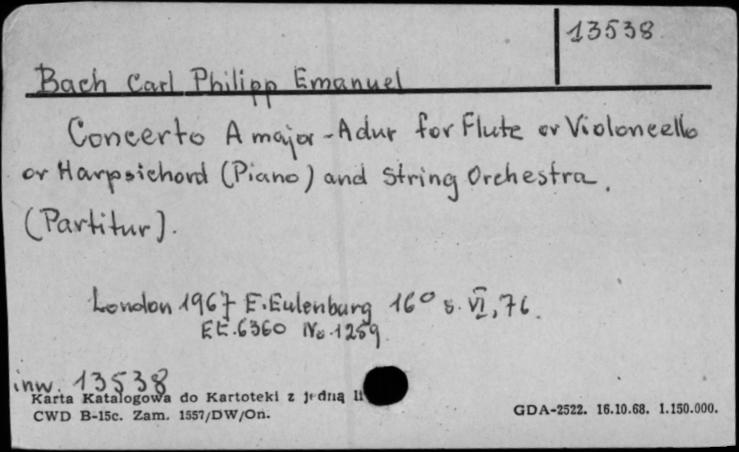 13538
Bach Carl Philipp Emanuel
Concerto A major - Adur for Flute or Violoncello
or Harpsichord (Piano) and String Orchestra.
(Partitur).
London 1967 E. Eulenburg 16° s. VI, 76.
EE. 6360 No. 1259
inw. 13538
Karta Katalogowa do Kartoteki z jedną li
CWD B-15c. Zam. 1557/DW/On.
GDA-2522. 16.10.68. 1.150.000.